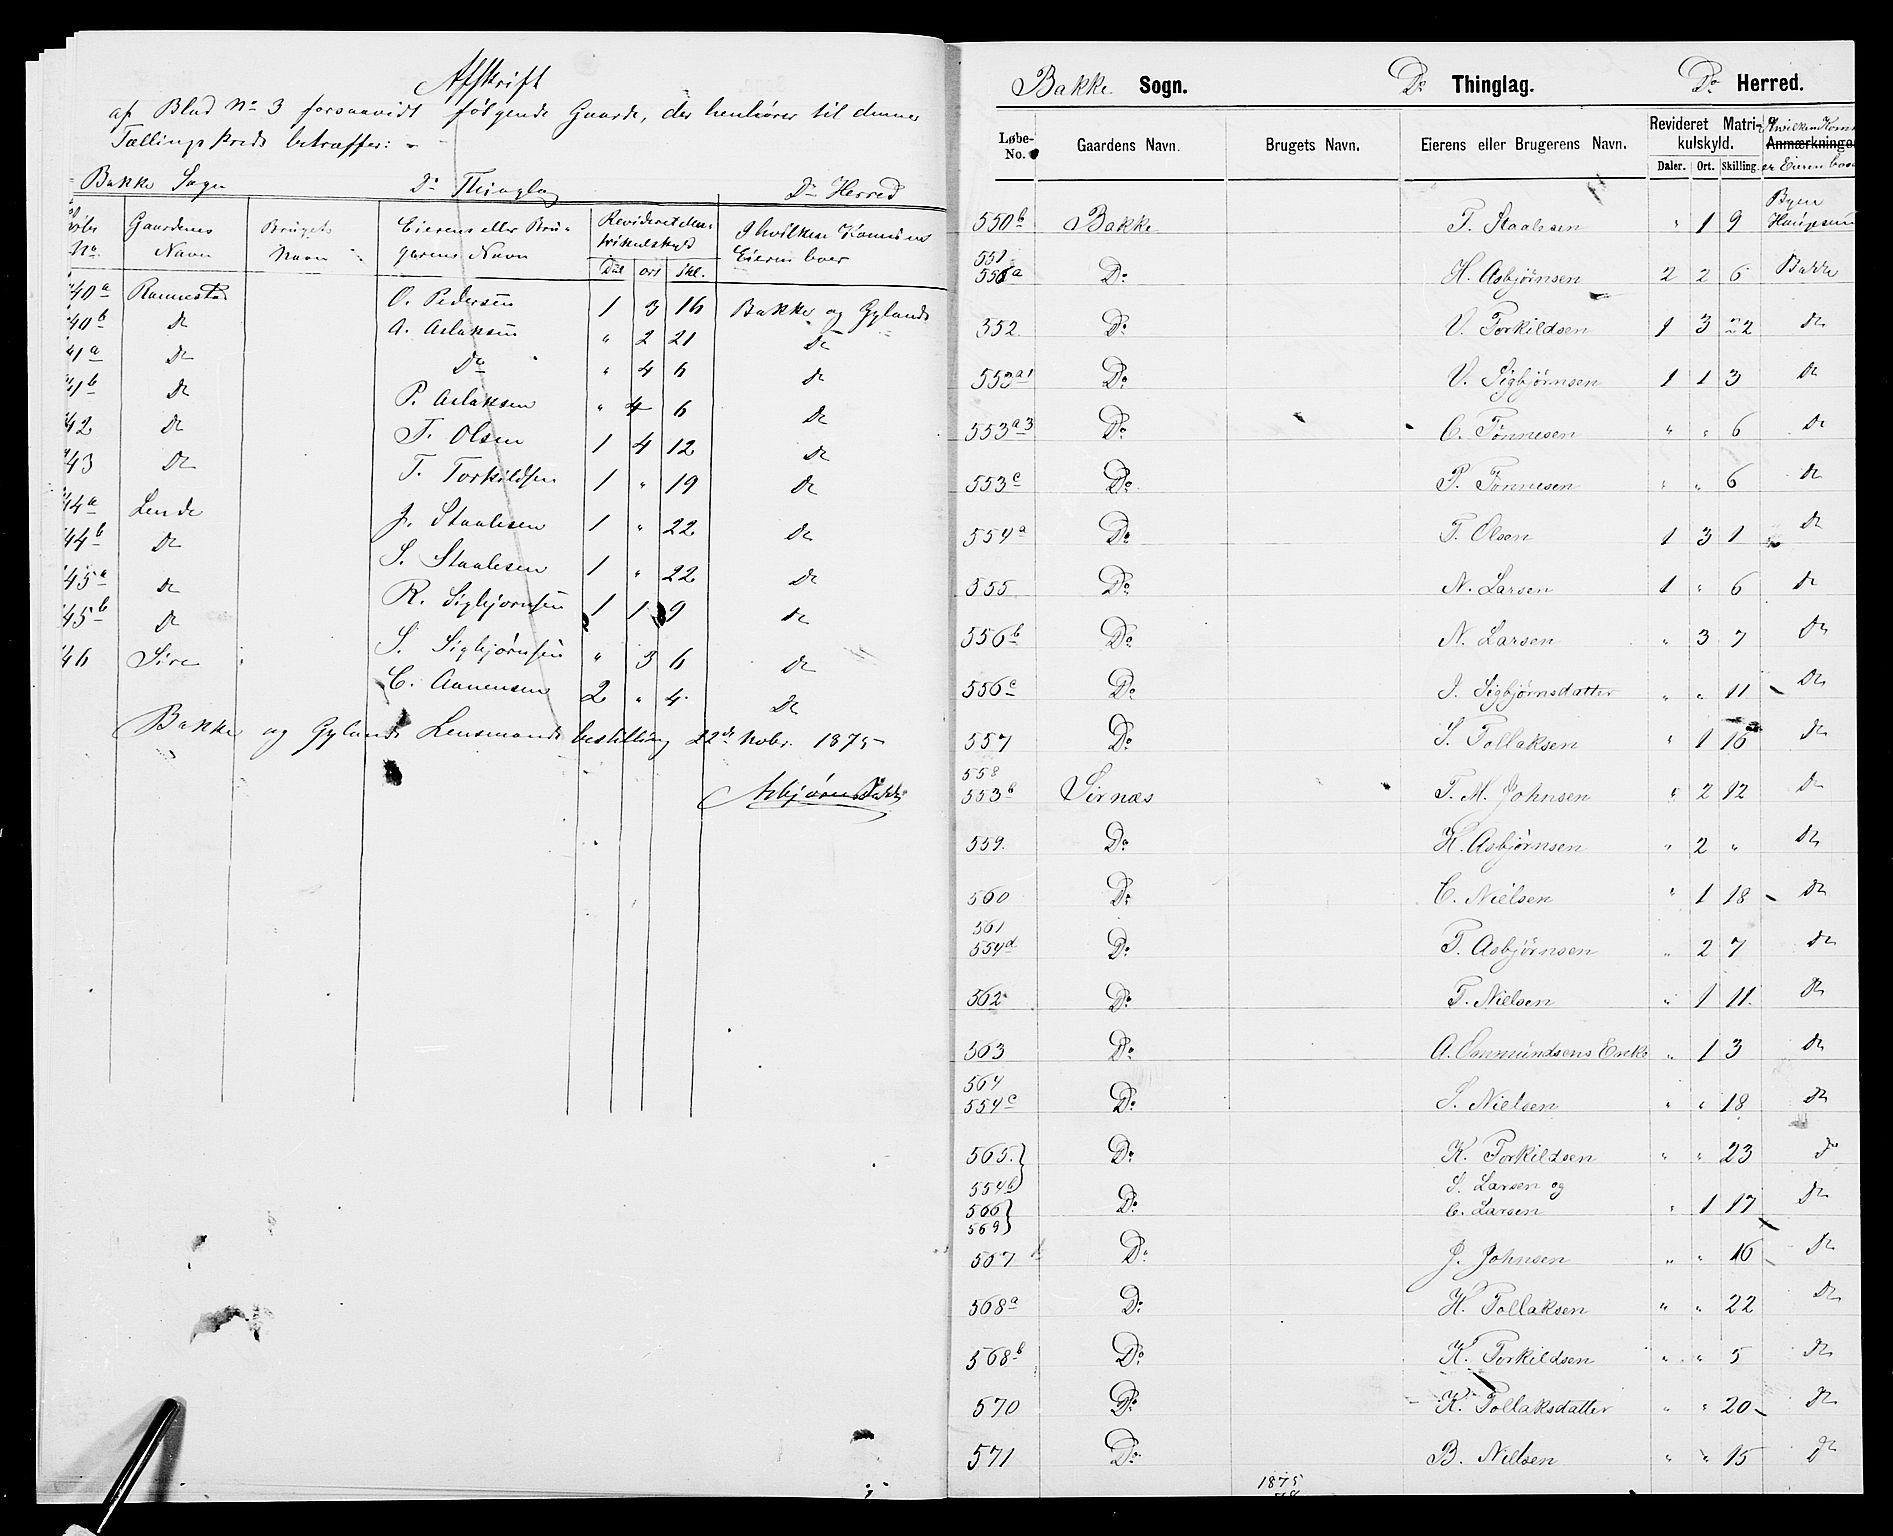 Afskrift
af Blad No 3 forsaavidt følgende Gaarde, der henhører til denne
Tællingskreds betræffer: -
Bakke Sogn Do Thinglag Do Herred
No Gaardens Navn Brugets Navn Eierens eller Brugerens Navn Revideret Matrikulskyld Dal ort Skl. I hvilken Komune Eieren boer
40a Rannestad O. Pedersen 1 3 16 Bakke og Gylands
40b do A. Aslaksen " 2 21 do
41a do Do " 4 6 do
41b do P. Aslaksen " 4 6 do
42 do T. Olsen 1 4 12 do
43 do T. Torkildsen 1 " 19 do
44a Lende J. Staalesen 1 " 22 do
44b do S. Staalesen 1 " 22 do
45a do R. Sigbjørnsen 1 1 9 do
45b do S. Sigbjørnsen " 3 6 do
46 Sire C. Aanensen 2 " 4 do
Bakke og Gylands Lensmandsbestilling 22de Novbr. 1875
Asbjørn Bakke
Bakke Sogn. Do Thinglag. Do Herred.
Løbe-No. Gaardens Navn. Brugets Navn. Eierens eller Brugerens Navn. Revideret Matrikulskyld. Daler. Ort. Skilling. I hvilken Kom Anmærkninger er Eieren bosa
550b Bakke T. Staalesen " 1 9 Byen
551
556a Do H. Asbjørnsen 2 2 6 Bakke
552 Do V. Torkildsen 1 3 22 do
553a1 Do V. Sigbjørnsen 1 1 3 do
553a3 Do C. Tønnesen " " 6 do
553c Do P. Tønnesen " " 6 do
554a Do T. Olsen 1 3 1 do
555 Do N. Larsen 1 " 6 do
556b Do N. Larsen " 3 7 do
556c Do I. Sigbjørnsdatter " " 11 do
557 Do S. Tollaksen " 1 16 do
558
553b Sirnæs T. M. Johnsen " 2 12 do
559. Do H. Asbjørnsen " 2 " do
560 Do C. Nielsen " 1 18 do
561
554d Do T. Asbjørnsen " 2 7 do
562 Do T. Nielsen " 1 11 do
563 Do A. Ommundsens Enke " 1 3 do
564
554c Do S. Nielsen " " 18 do
565 Do K. Torkildsen " " 23 do
554b S. Larsen og
566 Do C. Larsen " 1 17 do
569
567 Do J. Johnsen " " 16 do
568a Do H. Tollaksen " " 22 do
568b Do K. Torkildsen " " 5 do
570 Do K. Tollaksdatter " " 20 do
571 Do B. Nielsen " " 15 do
1875